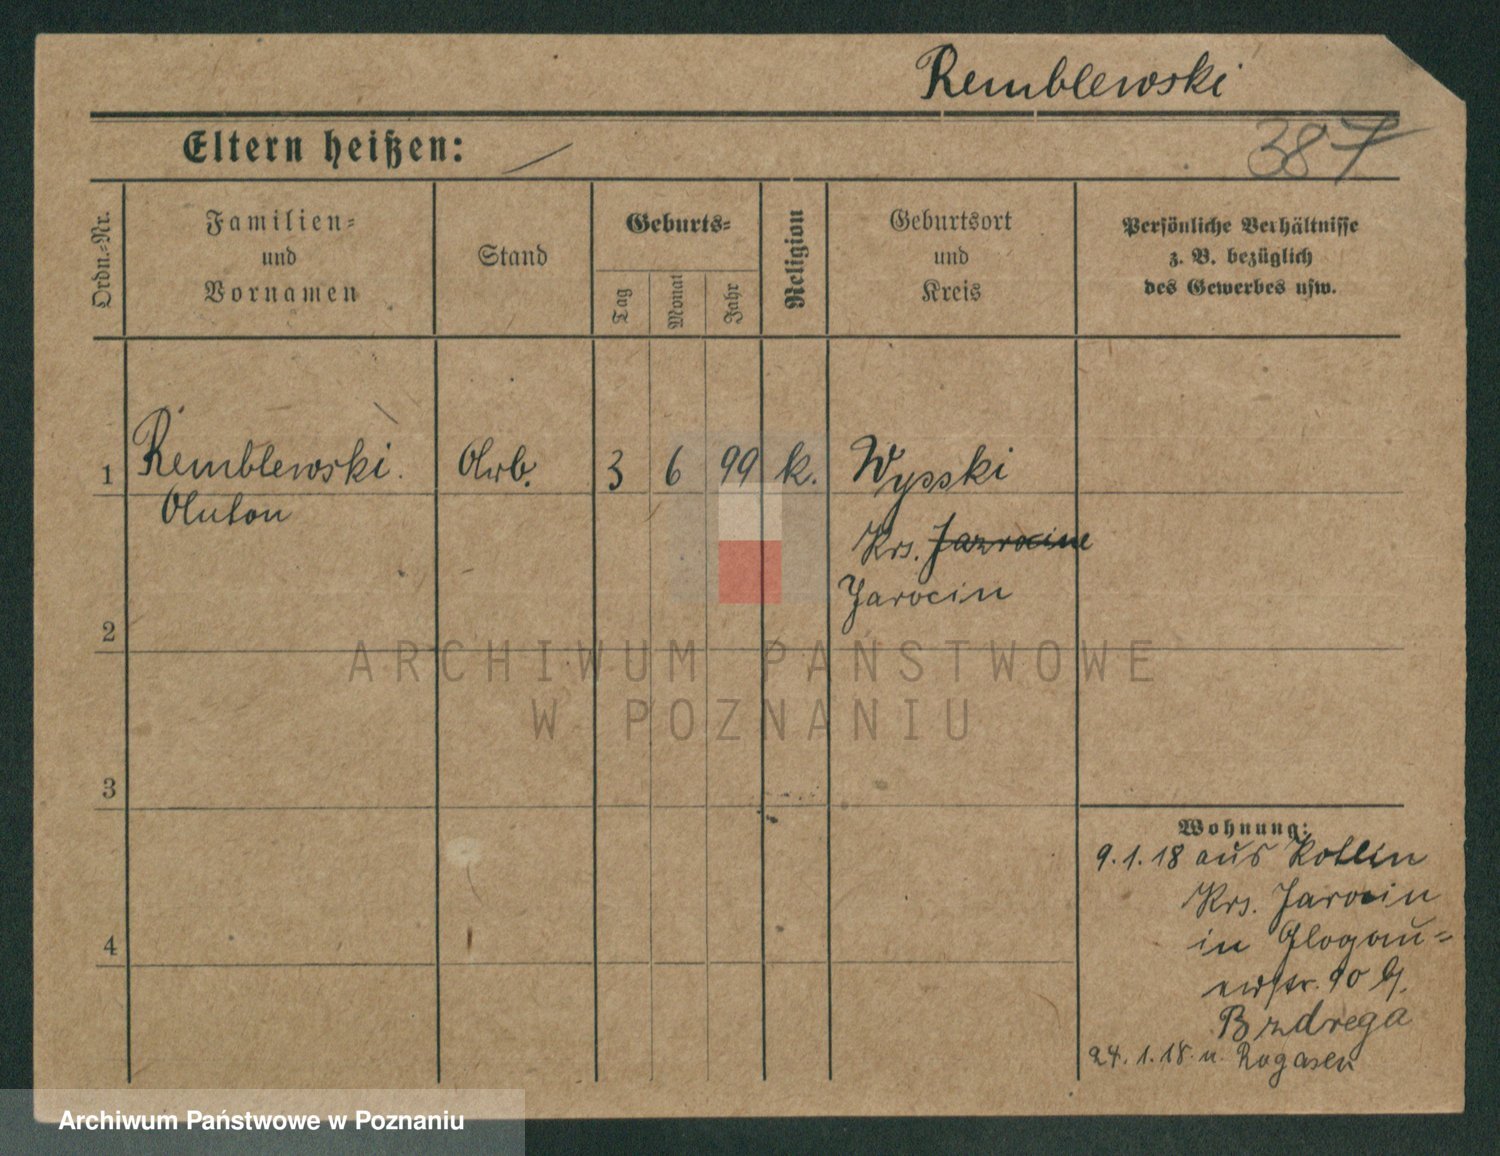 Remblewski
Eltern heißen: 387
Ordn.-Nr.
Familien-
und
Vornamen
Stand
Geburts-
Tag
Monat
Jahr
Religion
Geburtsort
und
Kreis
Persönliche Verhältnisse
z. B. bezüglich
des Gewerbes usw.
1 Remblewski. Arb. 3 6 99 k. Wysski
Anton
Krs. Jarocin
2
3
4
ARCHIWUM PAŃSTWOWE
W POZNANIU
Wohnung:
9.1.18 aus Kotlin
Krs. Jarocin
in Glogau-
erstr. 90 b.
Brzdrega
24.1.18 n. Rogasen
Archiwum Państwowe w Poznaniu